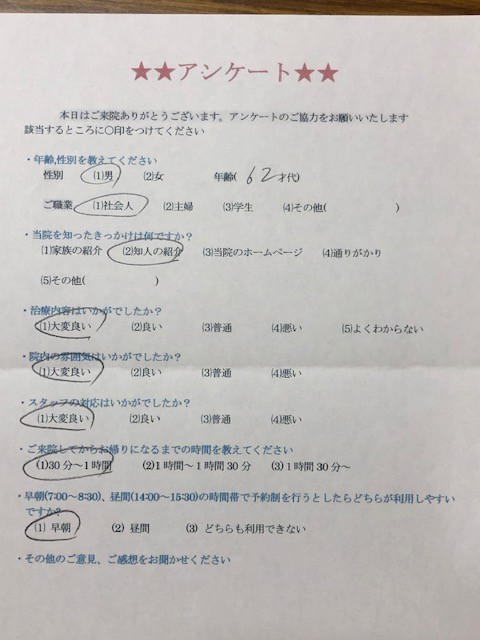 ★★アンケート★★
本日はご来院ありがとうございます。アンケートのご協力をお願いいたします
該当するところに○印をつけてください
・年齢,性別を教えてください
性別 (1)男 (2)女 年齢( 62才代)
ご職業 (1)社会人 (2)主婦 (3)学生 (4)その他( )
・当院を知ったきっかけは何ですか?
(1)家族の紹介 (2)知人の紹介 (3)当院のホームページ (4)通りがかり
(5)その他( )
・治療内容はいかがでしたか?
(1)大変良い (2)良い (3)普通 (4)悪い (5)よくわからない
・院内の雰囲気はいかがでしたか?
(1)大変良い (2)良い (3)普通 (4)悪い
・スタッフの対応はいかがでしたか?
(1)大変良い (2)良い (3)普通 (4)悪い
・ご来院してからお帰りになるまでの時間を教えてください
(1)30分～1時間 (2)1時間～1時間30分 (3)1時間30分～
・早朝(7:00～8:30)、昼間(14:00～15:30)の時間帯で予約制を行うとしたらどちらが利用しやすい
ですか?
(1) 早朝 (2) 昼間 (3) どちらも利用できない
・その他のご意見、ご感想をお聞かせください